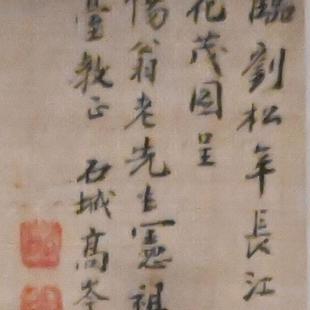 臨劉松年長江
花茂图呈
翁老先生憲祖
臺教正 石城高岑